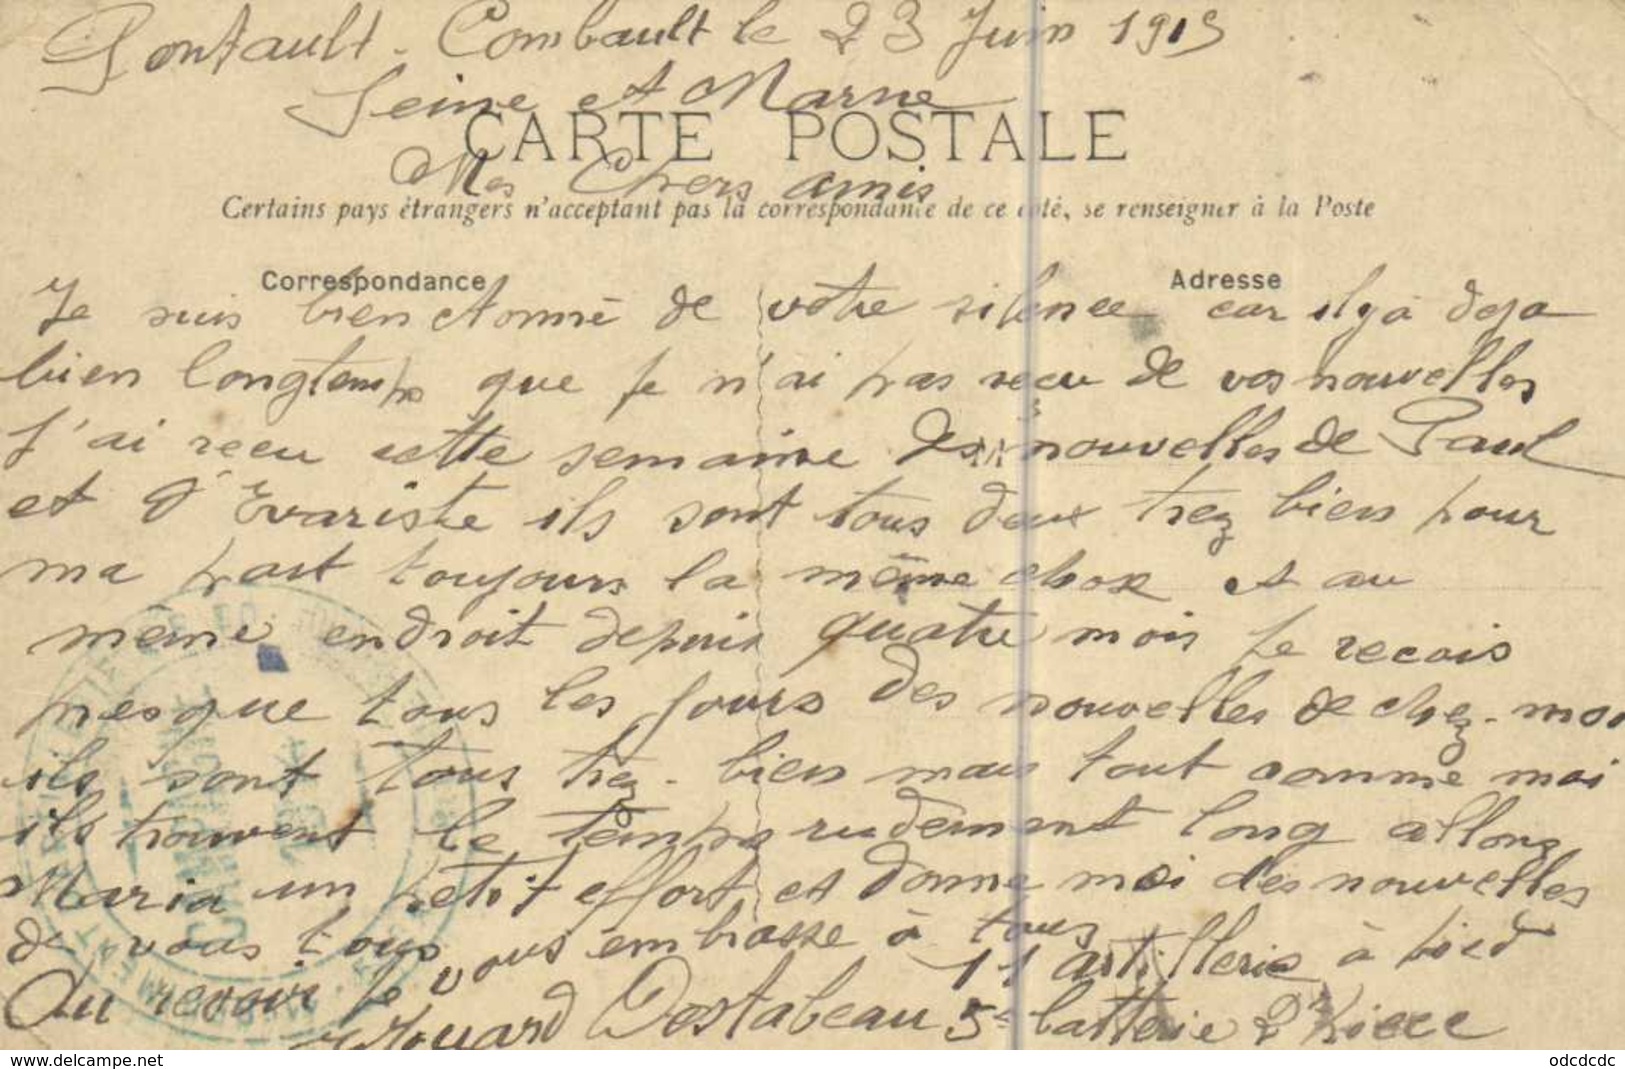 Pontault-Combault le 23 Juin 1915
Seine et Marne
CARTE POSTALE
Mes Chers amis
Certains pays étrangers n'acceptant pas la correspondance de ce côté, se renseigner à la Poste
Correspondance
Adresse
Je suis bien etonné de votre silence car il y à deja
bien longtemps que je n'ai pas recu de vos nouvelles
J'ai recu cette semaine des nouvelles de Paul
et d'Evariste ils sont tous deux trez bien pour
ma part toujours la même chose et au
même endroit depuis quatre mois Je recois
presque tous les jours des nouvelles de chez-moi
ils sont tous trez-bien mais tout comme moi
ils trouvent le temps rudement long allons
Maria un petit effort et donne moi des nouvelles
de vous tous
Au revoir Je vous embrasse à tous
11 artillerie à pied
Edouard Destabeau 5e batterie 2e Piece
www.delcampe.net
odcdcdc